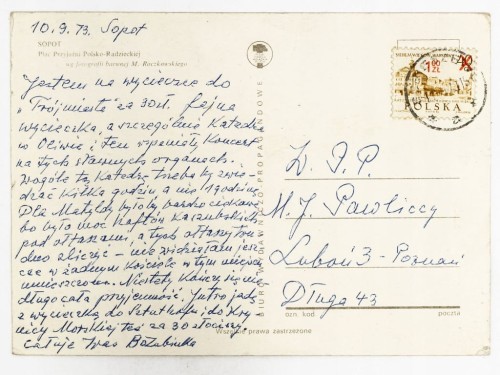 10.9.73. Sopot
SOPOT
Plac Przyjaźni Polsko-Radzieckiej
wg fotografii barwnej M. Raczkowskiego
Jestem na wycieczce do
"Trójmiasta" za 30zł. Fajna
wycieczka, a szczególnie Katedra
w Oliwie i ten wspaniały koncert
na tych sławnych organach.
Wogóle tą Katedrę trzeba by zwie-
dzać kilka godzin a nie 1 godzinę
Dla Matyldy byłoby bardzo ciekawe
bo było moc haftów Kaszubskich
pod ołtarzami, a tych ołtarzy trudno zliczyć – nie widziałam jesz-
cze w żadnym Kościele w tym miejscu
umieszczone. Niestety kończy się nie-
długo cała przyjemność. Jutro jadę
z wycieczką do Sztuthofu i do Kry-
nicy Morskiej też za 30 złociszy.
Całuje Was
BIURO WYDAWNICZO-PROPAGANDOWE
1 ZŁ
POLSKA
W. P. P.
M. J. Pawliccy
Luboń 3 - Poznań
Długa 43
ozn. kod
poczta
Wszelkie prawa zastrzeżone